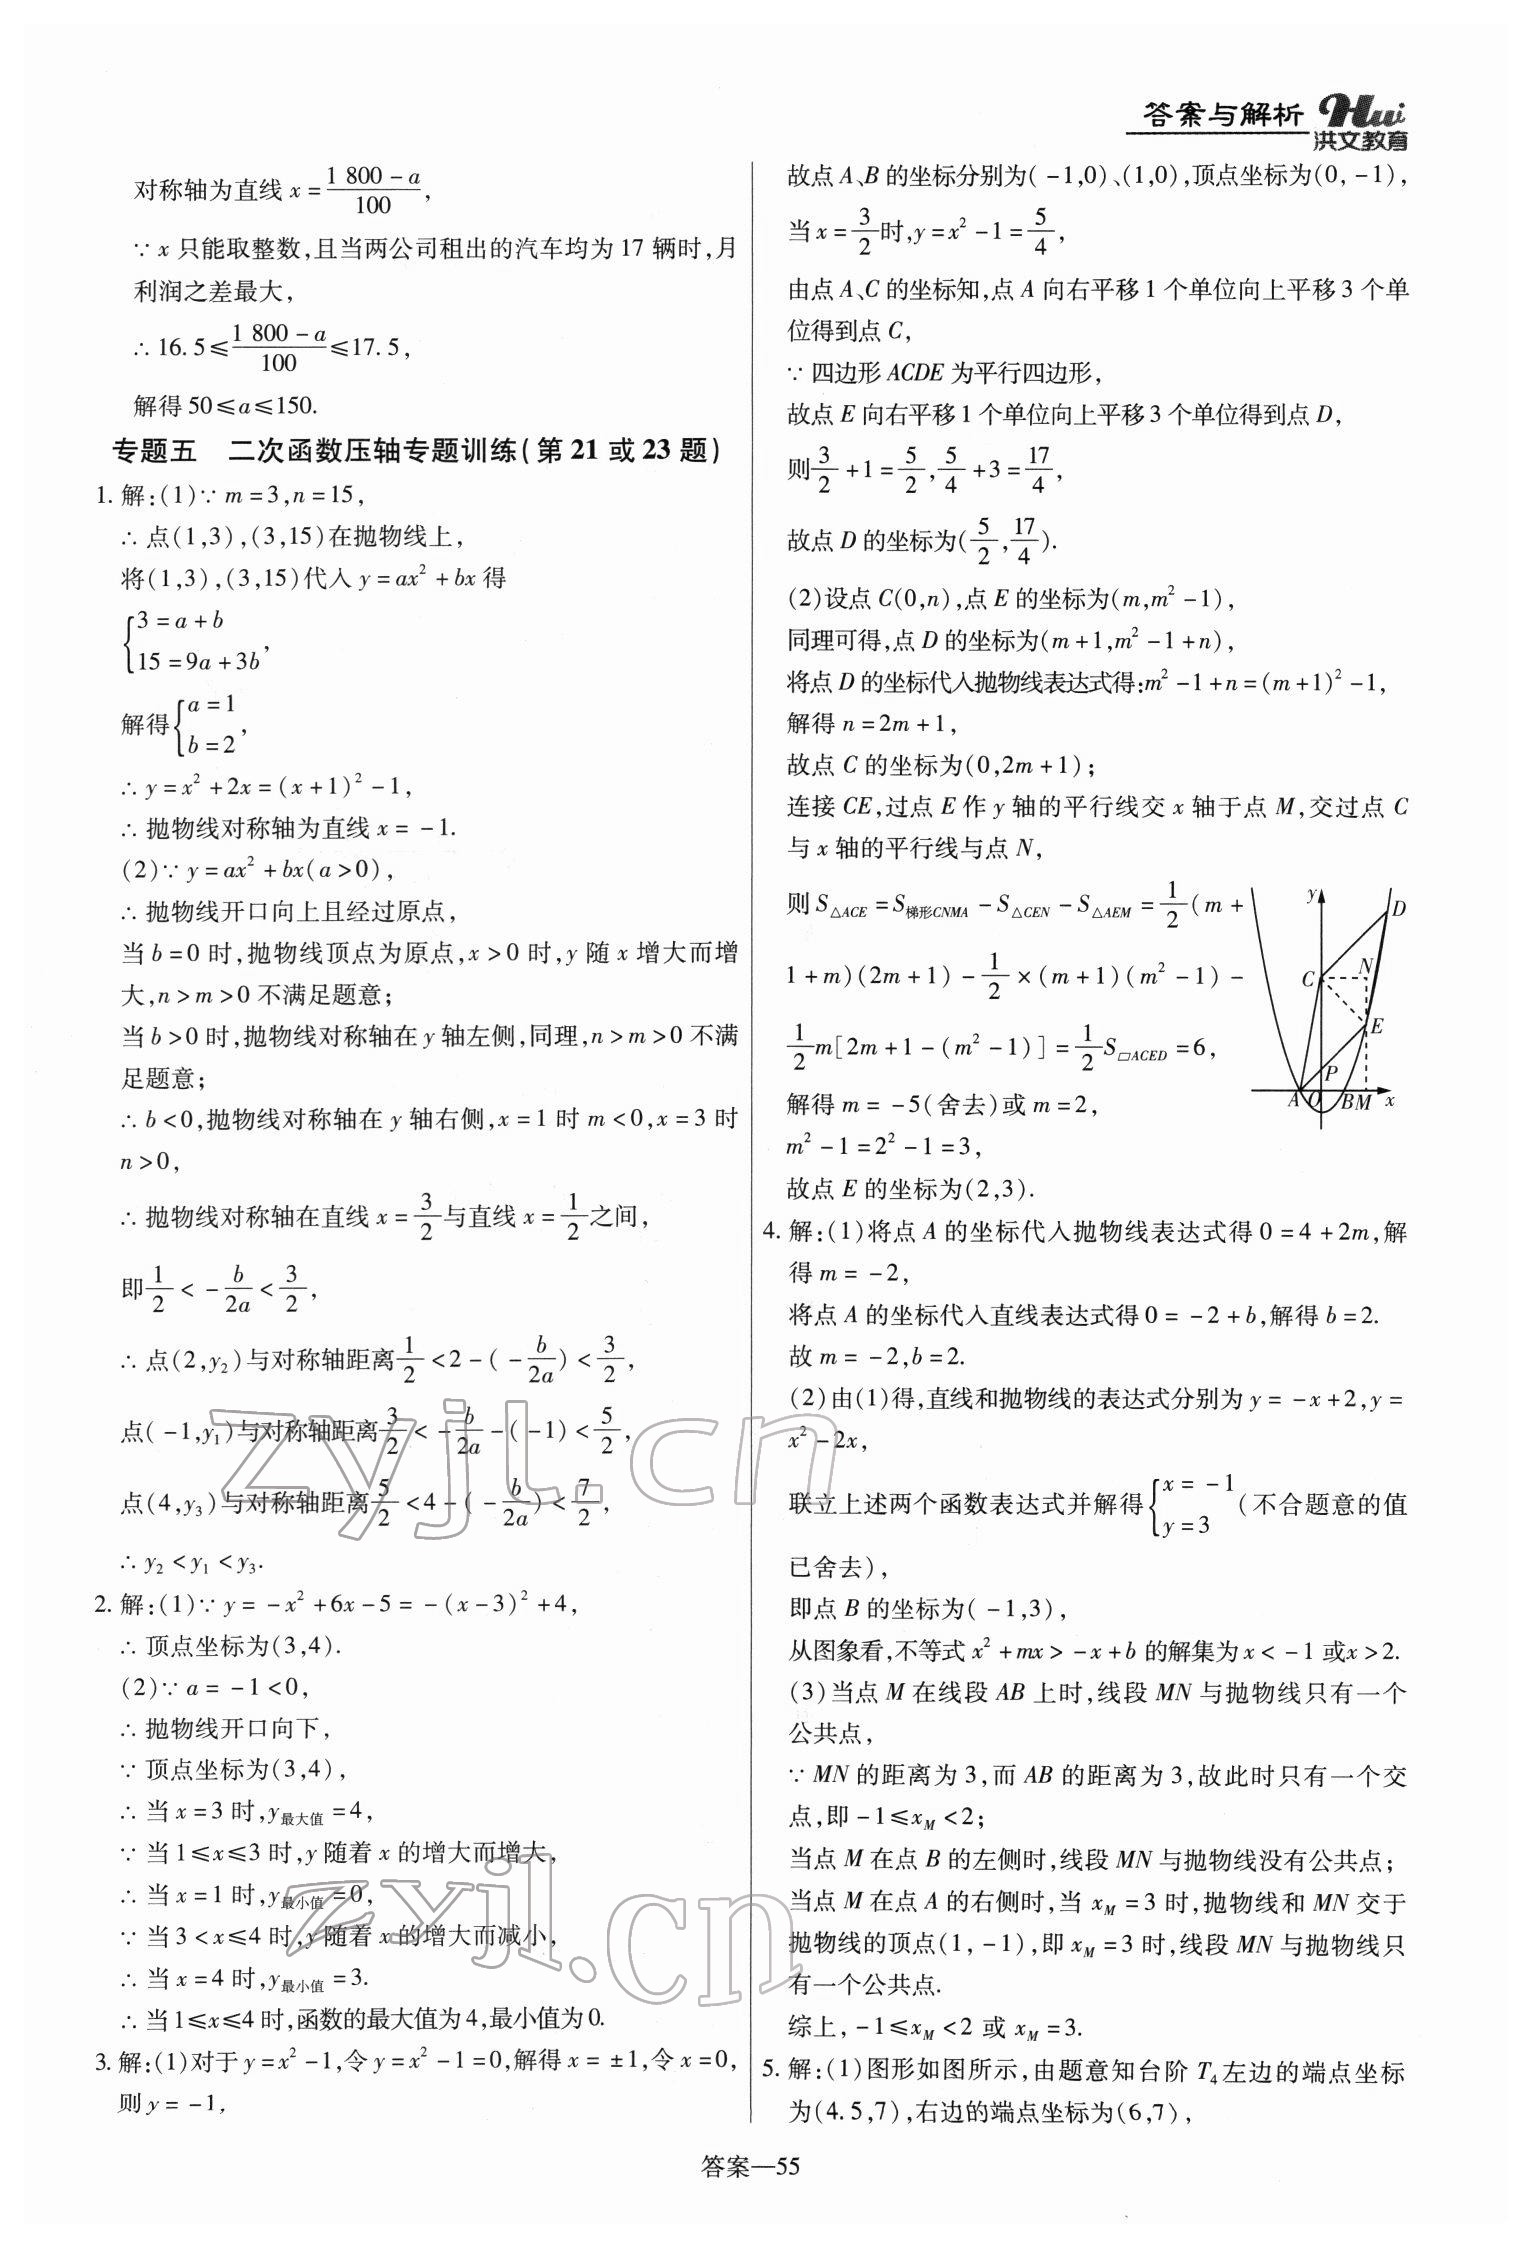 答案与解析 Hui
洪文教育
对称轴为直线 x = (1 800 - a)/100,
∵ x 只能取整数,且当两公司租出的汽车均为 17 辆时,月
利润之差最大,
∴ 16.5 ≤ (1 800 - a)/100 ≤ 17.5,
解得 50 ≤ a ≤ 150.
专题五 二次函数压轴专题训练(第 21 或 23 题)
1. 解:(1)∵ m = 3,n = 15,
∴ 点(1,3),(3,15)在抛物线上,
将(1,3),(3,15)代入 y = ax² + bx 得
{3 = a + b
15 = 9a + 3b,
解得{a = 1
b = 2,
∴ y = x² + 2x = (x + 1)² - 1,
∴ 抛物线对称轴为直线 x = -1.
(2)∵ y = ax² + bx(a > 0),
∴ 抛物线开口向上且经过原点,
当 b = 0 时,抛物线顶点为原点,x > 0 时,y 随 x 增大而增
大,n > m > 0 不满足题意;
当 b > 0 时,抛物线对称轴在 y 轴左侧,同理,n > m > 0 不满
足题意;
∴ b < 0,抛物线对称轴在 y 轴右侧,x = 1 时 m < 0,x = 3 时
n > 0,
∴ 抛物线对称轴在直线 x = 3/2 与直线 x = 1/2 之间,
即 1/2 < -b/2a < 3/2,
∴ 点(2,y₂)与对称轴距离 1/2 < 2 - (-b/2a) < 3/2,
点(-1,y₁)与对称轴距离 3/2 < -b/2a - (-1) < 5/2,
点(4,y₃)与对称轴距离 5/2 < 4 - (-b/2a) < 7/2,
∴ y₂ < y₁ < y₃.
2. 解:(1)∵ y = -x² + 6x - 5 = -(x - 3)² + 4,
∴ 顶点坐标为(3,4).
(2)∵ a = -1 < 0,
∴ 抛物线开口向下,
∵ 顶点坐标为(3,4),
∴ 当 x = 3 时,y最大值 = 4,
∵ 当 1 ≤ x ≤ 3 时,y 随着 x 的增大而增大,
∴ 当 x = 1 时,y最小值 = 0,
∵ 当 3 < x ≤ 4 时,y 随着 x 的增大而减小,
∴ 当 x = 4 时,y最小值 = 3.
∴ 当 1 ≤ x ≤ 4 时,函数的最大值为 4,最小值为 0.
3. 解:(1)对于 y = x² - 1,令 y = x² - 1 = 0,解得 x = ±1,令 x = 0,
则 y = -1,
故点 A、B 的坐标分别为(-1,0)、(1,0),顶点坐标为(0,-1),
当 x = 3/2 时,y = x² - 1 = 5/4,
由点 A、C 的坐标知,点 A 向右平移 1 个单位向上平移 3 个单
位得到点 C,
∵ 四边形 ACDE 为平行四边形,
故点 E 向右平移 1 个单位向上平移 3 个单位得到点 D,
则 3/2 + 1 = 5/2,5/4 + 3 = 17/4,
故点 D 的坐标为(5/2,17/4).
(2)设点 C(0,n),点 E 的坐标为(m,m² - 1),
同理可得,点 D 的坐标为(m + 1,m² - 1 + n),
将点 D 的坐标代入抛物线表达式得:m² - 1 + n = (m + 1)² - 1,
解得 n = 2m + 1,
故点 C 的坐标为(0,2m + 1);
连接 CE,过点 E 作 y 轴的平行线交 x 轴于点 M,交过点 C
与 x 轴的平行线与点 N,
则 S△ACE = S梯形CNMA - S△CEN - S△AEM = 1/2(m +
1 + m)(2m + 1) - 1/2 × (m + 1)(m² - 1) -
1/2 m[2m + 1 - (m² - 1)] = 1/2 S▱ACED = 6,
解得 m = -5(舍去)或 m = 2,
m² - 1 = 2² - 1 = 3,
故点 E 的坐标为(2,3).
y
D
C
N
E
P
A O B M x
4. 解:(1)将点 A 的坐标代入抛物线表达式得 0 = 4 + 2m,解
得 m = -2,
将点 A 的坐标代入直线表达式得 0 = -2 + b,解得 b = 2.
故 m = -2,b = 2.
(2)由(1)得,直线和抛物线的表达式分别为 y = -x + 2,y =
x² - 2x,
联立上述两个函数表达式并解得{x = -1
y = 3 (不合题意的值
已舍去),
即点 B 的坐标为(-1,3),
从图象看,不等式 x² + mx > -x + b 的解集为 x < -1 或 x > 2.
(3)当点 M 在线段 AB 上时,线段 MN 与抛物线只有一个
公共点,
∵ MN 的距离为 3,而 AB 的距离为 3,故此时只有一个交
点,即 -1 ≤ xM < 2;
当点 M 在点 B 的左侧时,线段 MN 与抛物线没有公共点;
当点 M 在点 A 的右侧时,当 xM = 3 时,抛物线和 MN 交于
抛物线的顶点(1,-1),即 xM = 3 时,线段 MN 与抛物线只
有一个公共点.
综上,-1 ≤ xM < 2 或 xM = 3.
5. 解:(1)图形如图所示,由题意知台阶 T₄ 左边的端点坐标
为(4.5,7),右边的端点坐标为(6,7),
zyjl.cn
zyjl.cn
答案—55